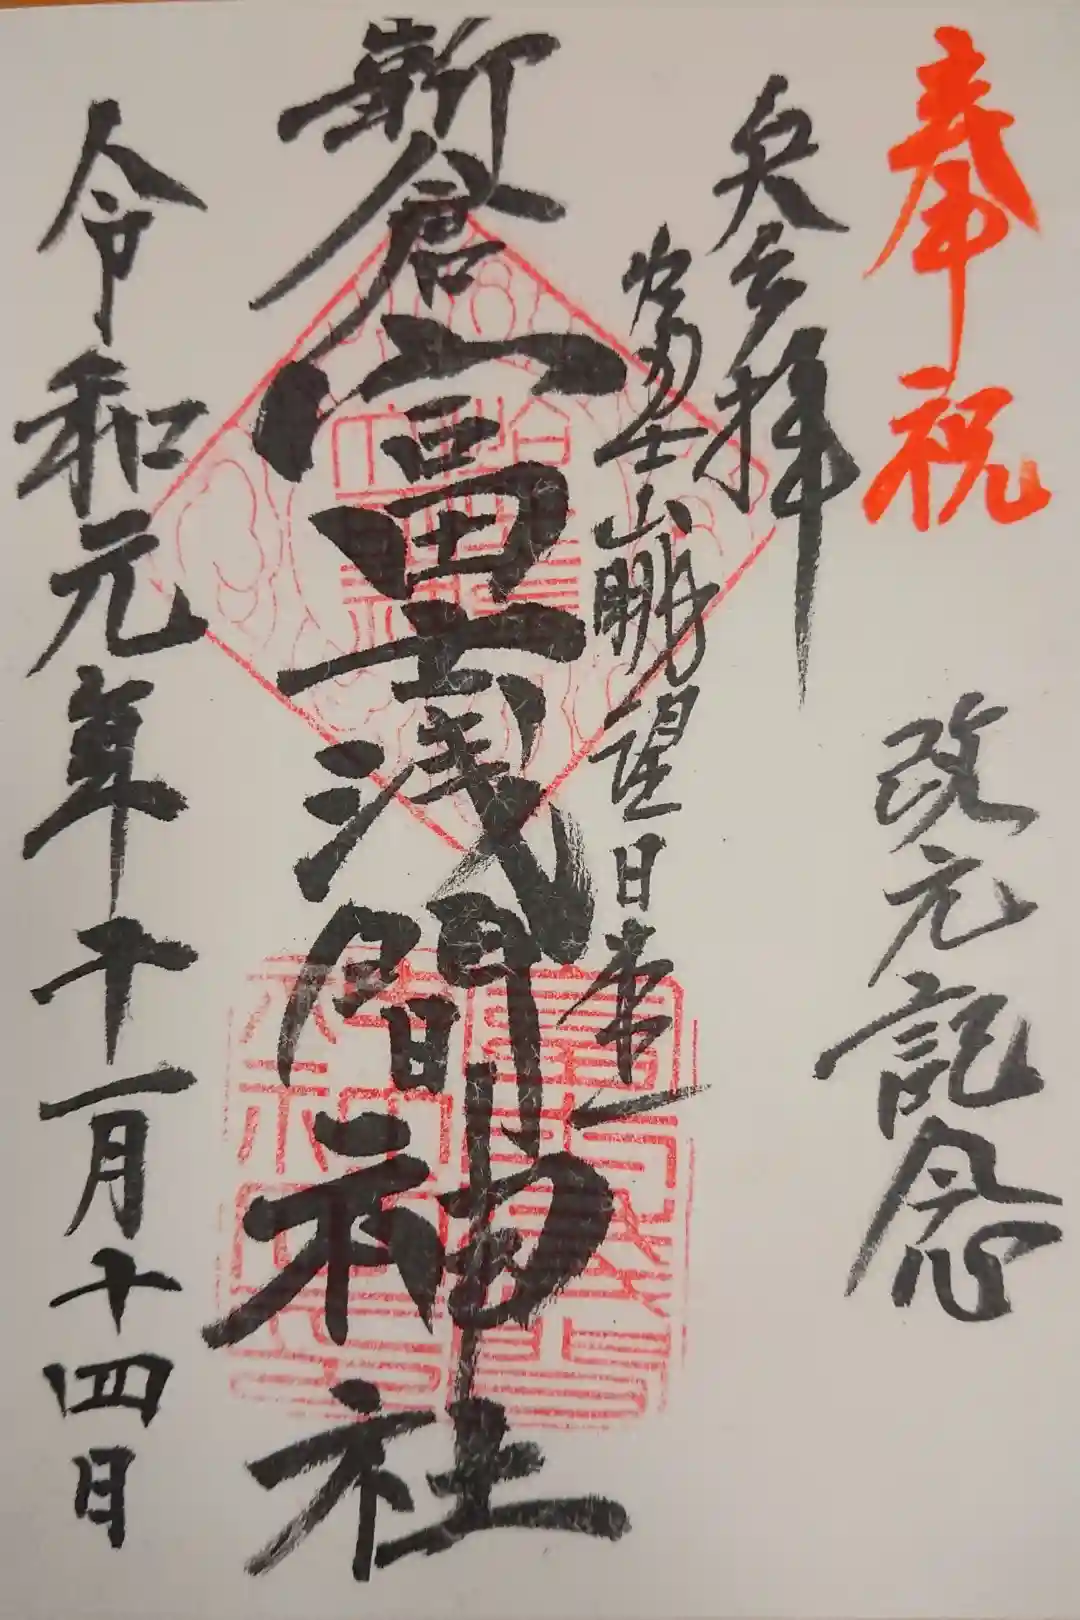 奉祝 改元記念
参拝
富士山眺望日本一
新倉富士浅間神社
令和元年十一月十四日